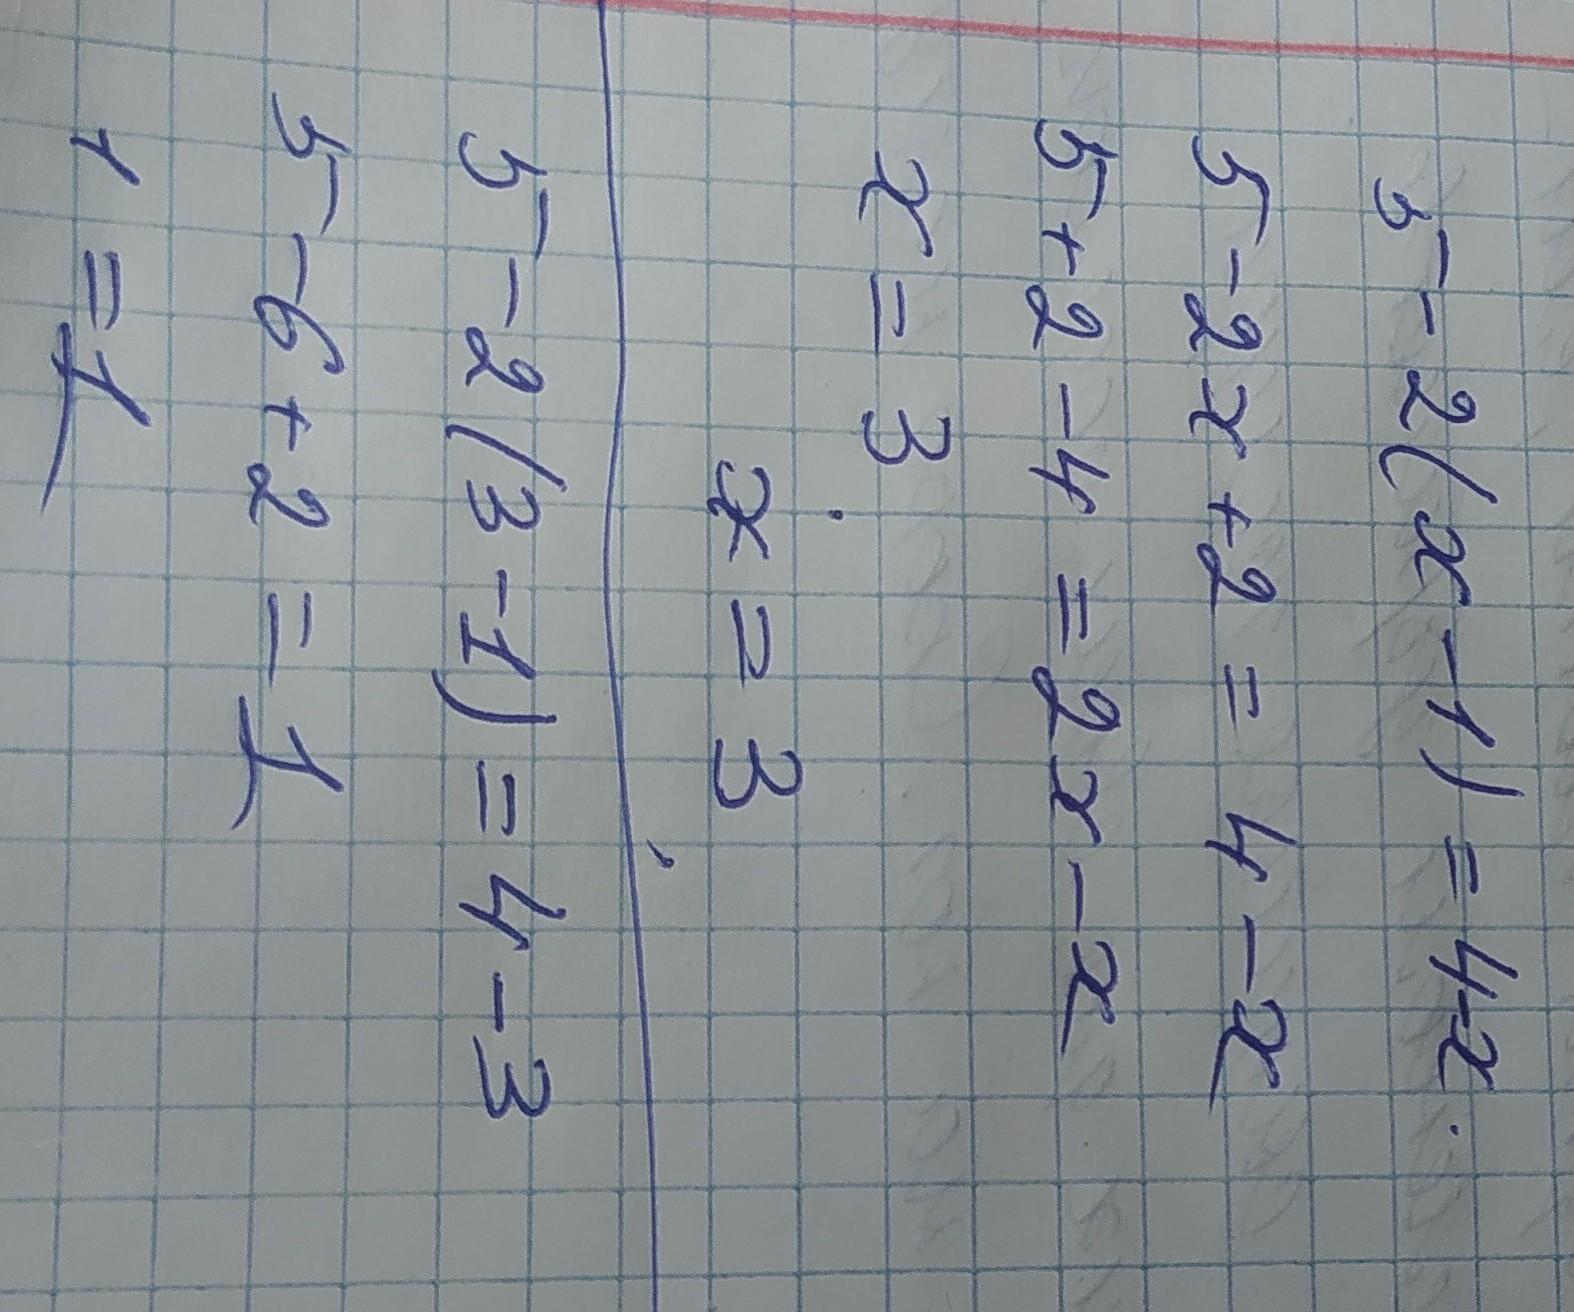 5 - 2(x - 1) = 4 - x.
5 - 2x + 2 = 4 - x
5 + 2 - 4 = 2x - x
x = 3
x = 3
5 - 2(3 - 1) = 4 - 3
5 - 6 + 2 = 1
1 = 1